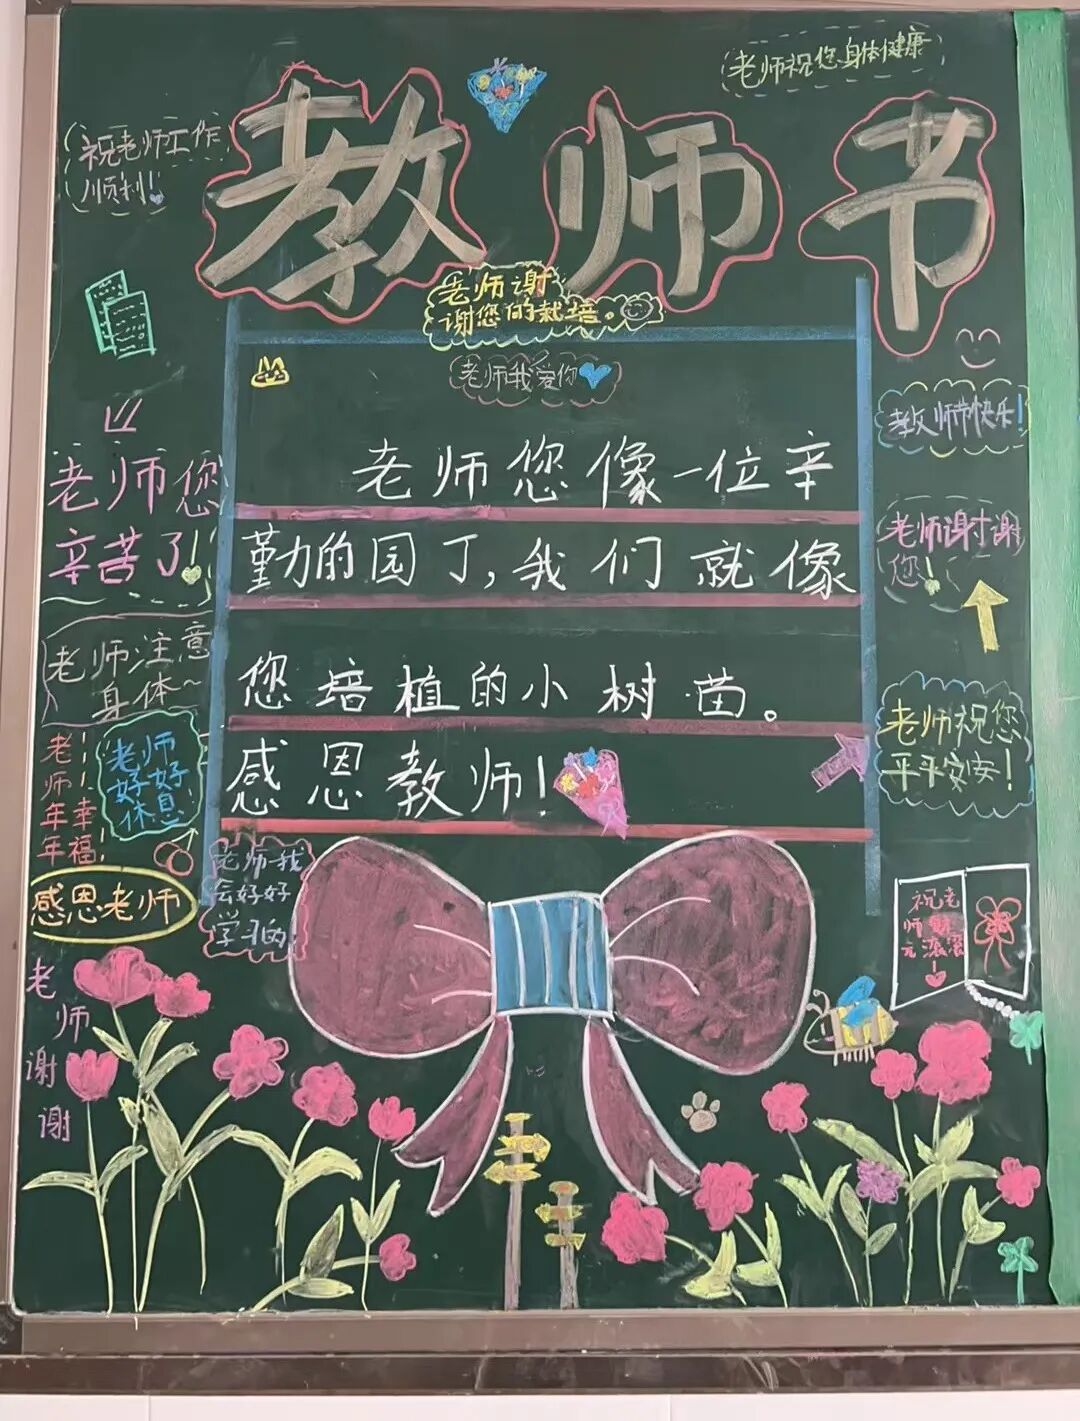 老师祝您身体健康
祝老师工作
顺利!
教师节
老师谢
谢您的栽培。
老师我爱你
教师节快乐!
老师您像一位辛
勤的园丁,我们就像
您培植的小树苗。
感恩教师!
老师您
辛苦了!
老师谢谢
您!
老师注意
身体~
老师!年年幸福!
老师
好好
休息!
老师祝您
平平安安!
感恩老师
老师我
会好好
学习的!
祝老
师财
元滚滚!
老师谢谢